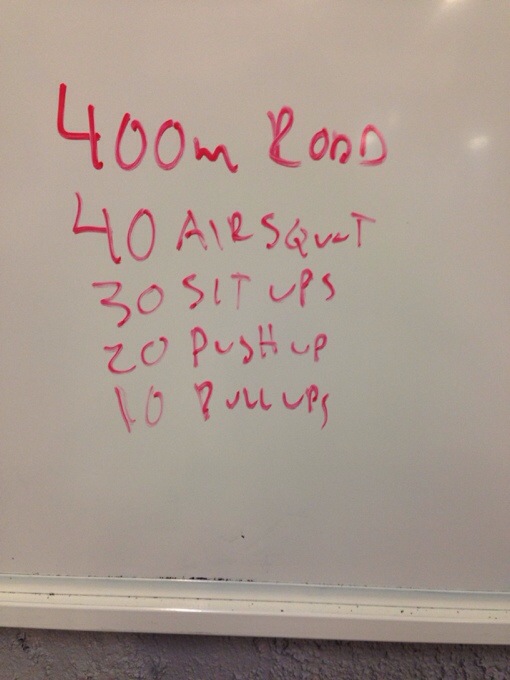 400m ROAD
40 AIR SQUAT
30 SIT UPS
20 PUSH UP
10 PULL UPS